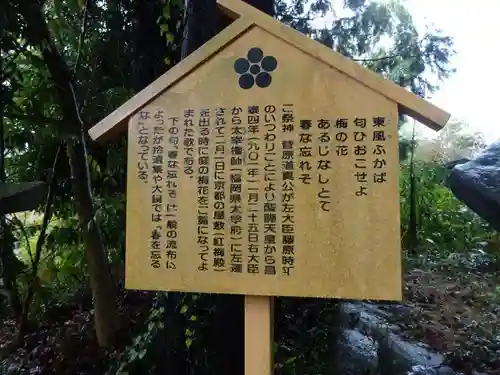 東風ふかば
匂ひおこせよ
梅の花
あるじなしとて
春な忘れそ
ご祭神 菅原道真公が左大臣藤原時平
のいつわりごとにより醍醐天皇から昌
泰四年(九〇一年)一月二十五日右大臣
から太宰権帥(福岡県大宰府)に左遷
されて二月一日に京都の屋敷(紅梅殿)
を出る時に庭の梅花をご覧になってよ
まれた歌である。
下の句、「春な忘れそ」は一般の流布に
よったが拾遺集や大鏡では「春を忘る
な」となっている。